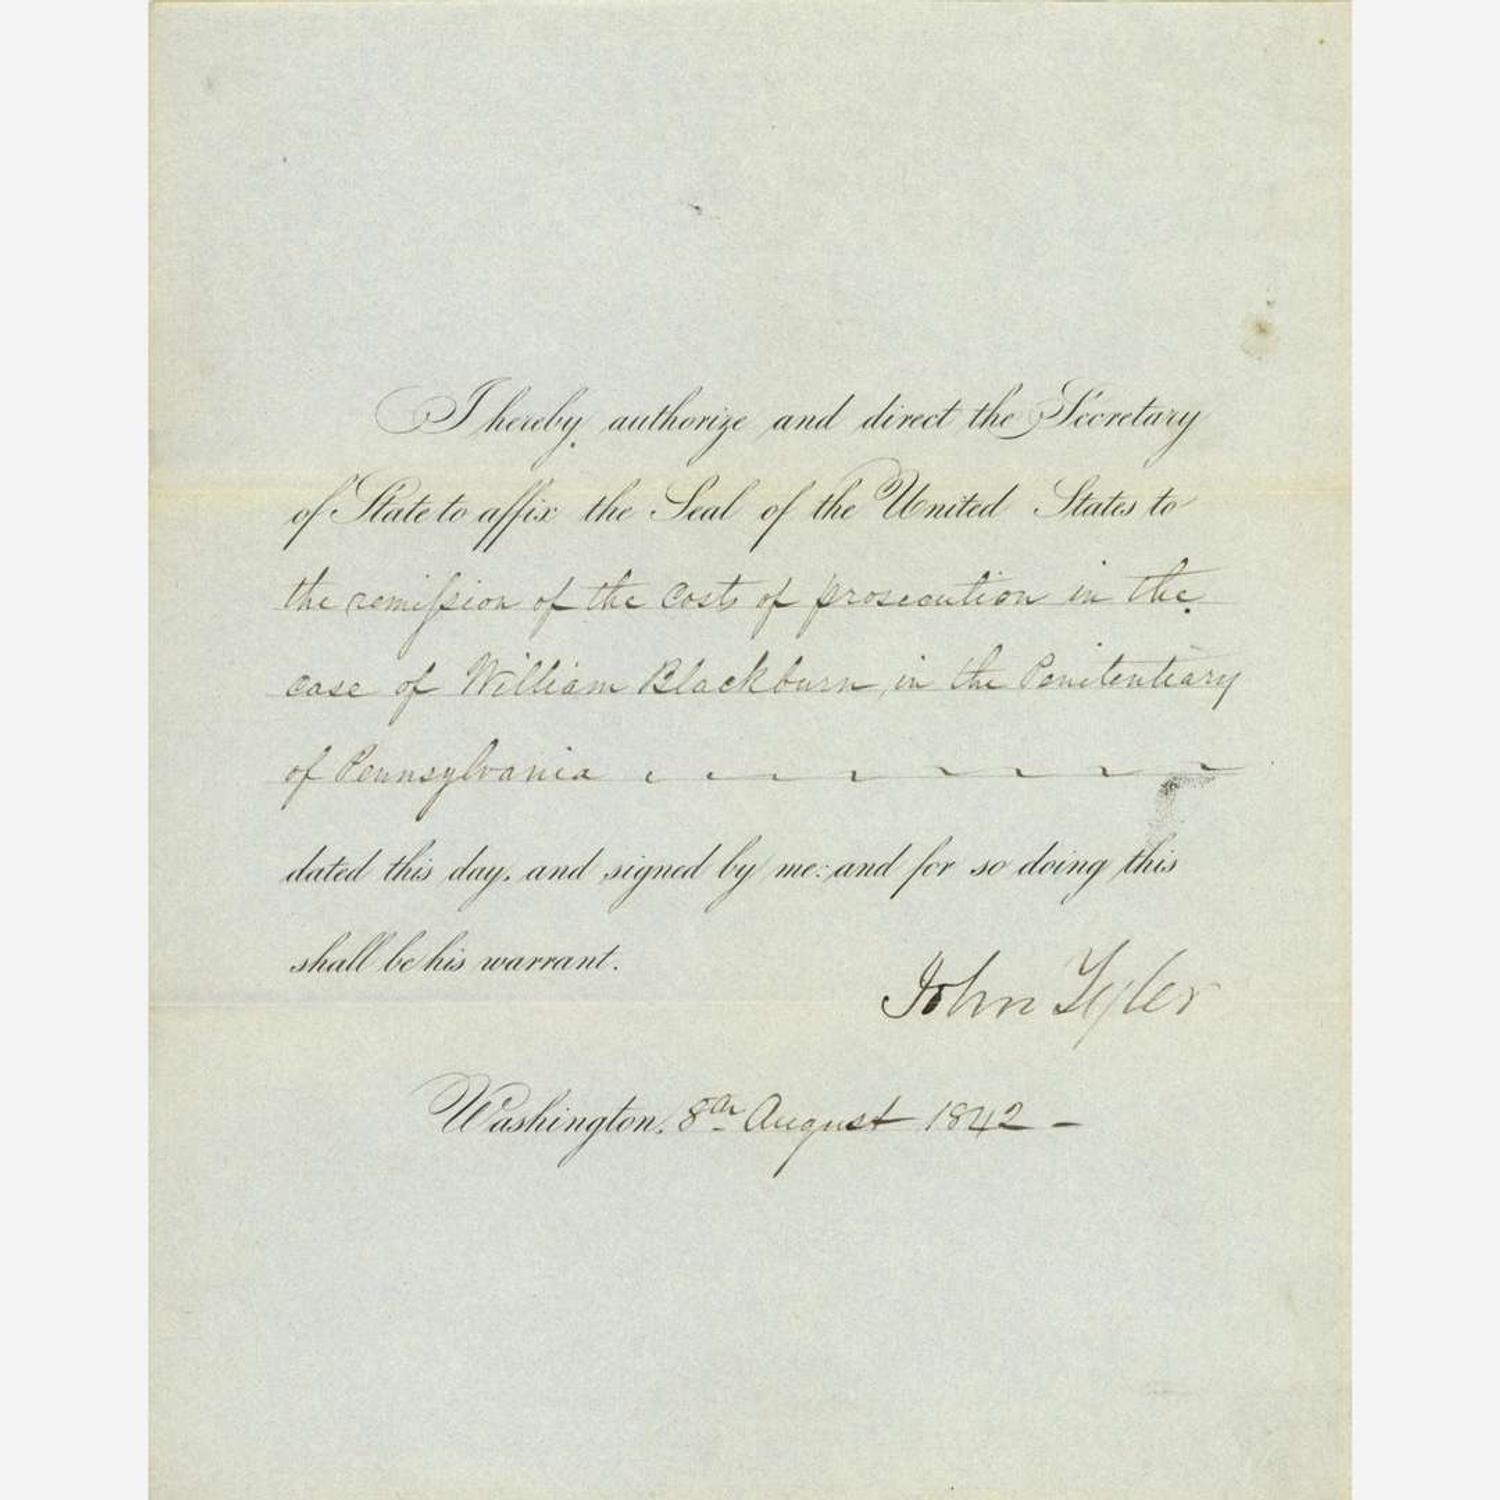 I hereby authorize and direct the Secretary
of State to affix the Seal of the United States to
the remission of the costs of prosecution in the
case of William Blackburn, in the Penitentiary
of Pennsylvania
dated this day, and signed by me: and for so doing this
shall be his warrant.
John Tyler
Washington, 8th August 1842 -